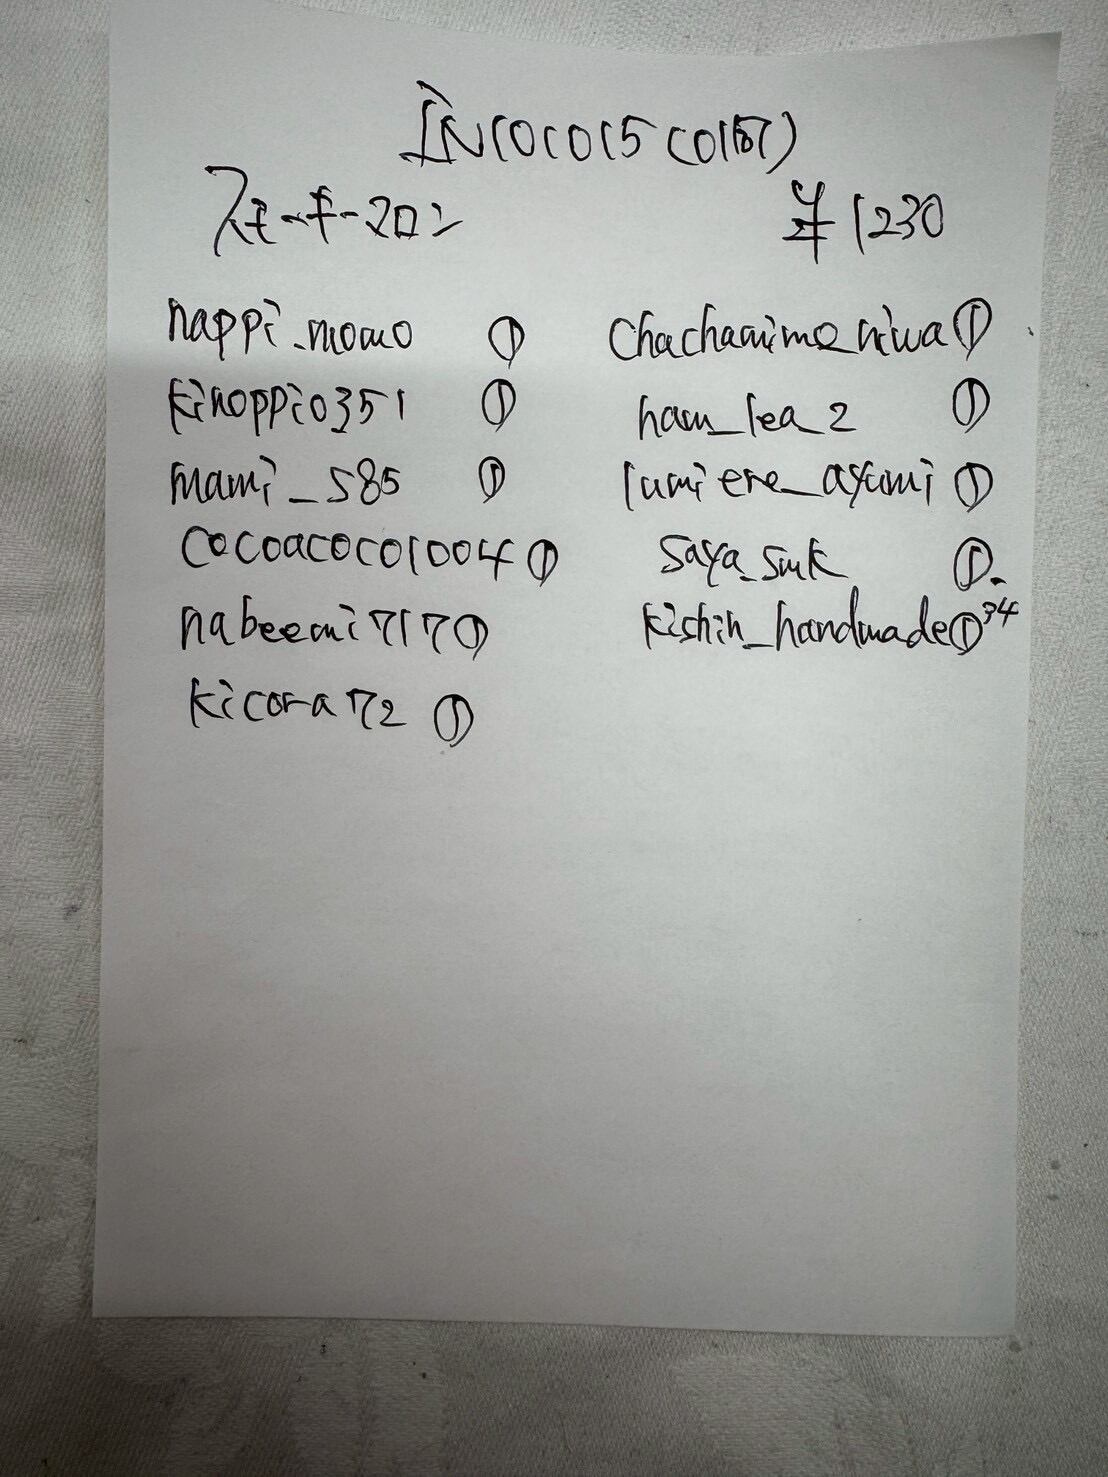 スモーキーマロン ¥1230
nappi_momo ①
kinoppio351 ①
mami_585 ①
cocoacoco1004 ①
nabeemi7170 ①
kicora72 ①
chachamimo_niwa ①
ham_lea_2 ①
lumiere_ayumi ①
saya_smk ①
kishih_handmade ① 34